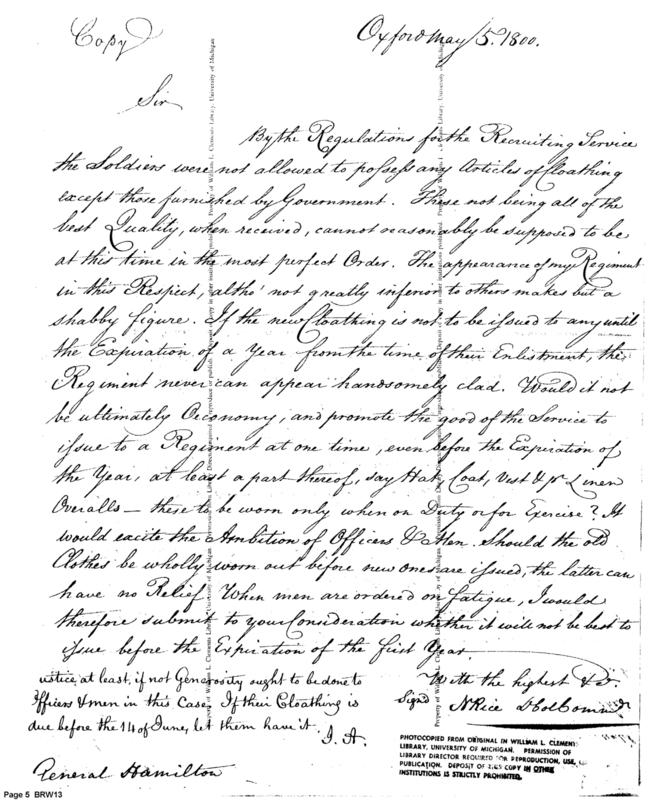 Copy
Oxford May 15. 1800.
Sir
By the Regulations for the Recruiting Service
the Soldiers were not allowed to possess any Articles of Cloathing
except those furnished by Government. These not being all of the
best Quality, when received, cannot reasonably be supposed to be
at this time in the most perfect Order. The appearance of my Regiment
in this Respect, altho' not greatly inferior to others makes but a
shabby figure. If the new Cloathing is not to be issued to any until
the Expiration of a Year from the time of their Enlistment, the
Regiment never can appear handsomely clad. Would it not
be ultimately Oeconomy, and promote the good of the Service to
issue to a Regiment at one time, even before the Expiration of
the Year, at least a part thereof, say Hat, Coat, Vest & pr Linen
Overalls — these to be worn only when on Duty or for Exercise? It
would excite the Ambition of Officers & Men. Should the old
Clothes be wholly worn out before new ones are issued, the latter can
have no Relief When men are ordered on fatigue, I would
therefore submit to your Consideration whether it will not be best to
issue before the Expiration of the first Year.
With the highest &c.
Signd N Rice Lt Col Commdt
ustice at least, if not Generosity ought to be done to
Officers & men in this Case. If their Cloathing is
due before the 14 of June, let them have it.
J. A.
General Hamilton
Property of William L. Clements Library, University of Michigan
PHOTOCOPIED FROM ORIGINAL IN WILLIAM L. CLEMENTS
LIBRARY, UNIVERSITY OF MICHIGAN. PERMISSION OF
LIBRARY DIRECTOR REQUIRED FOR REPRODUCTION, USE,
PUBLICATION. DEPOSIT OF THIS COPY IN OTHER
INSTITUTIONS IS STRICTLY PROHIBITED.
Page 5 BRW13